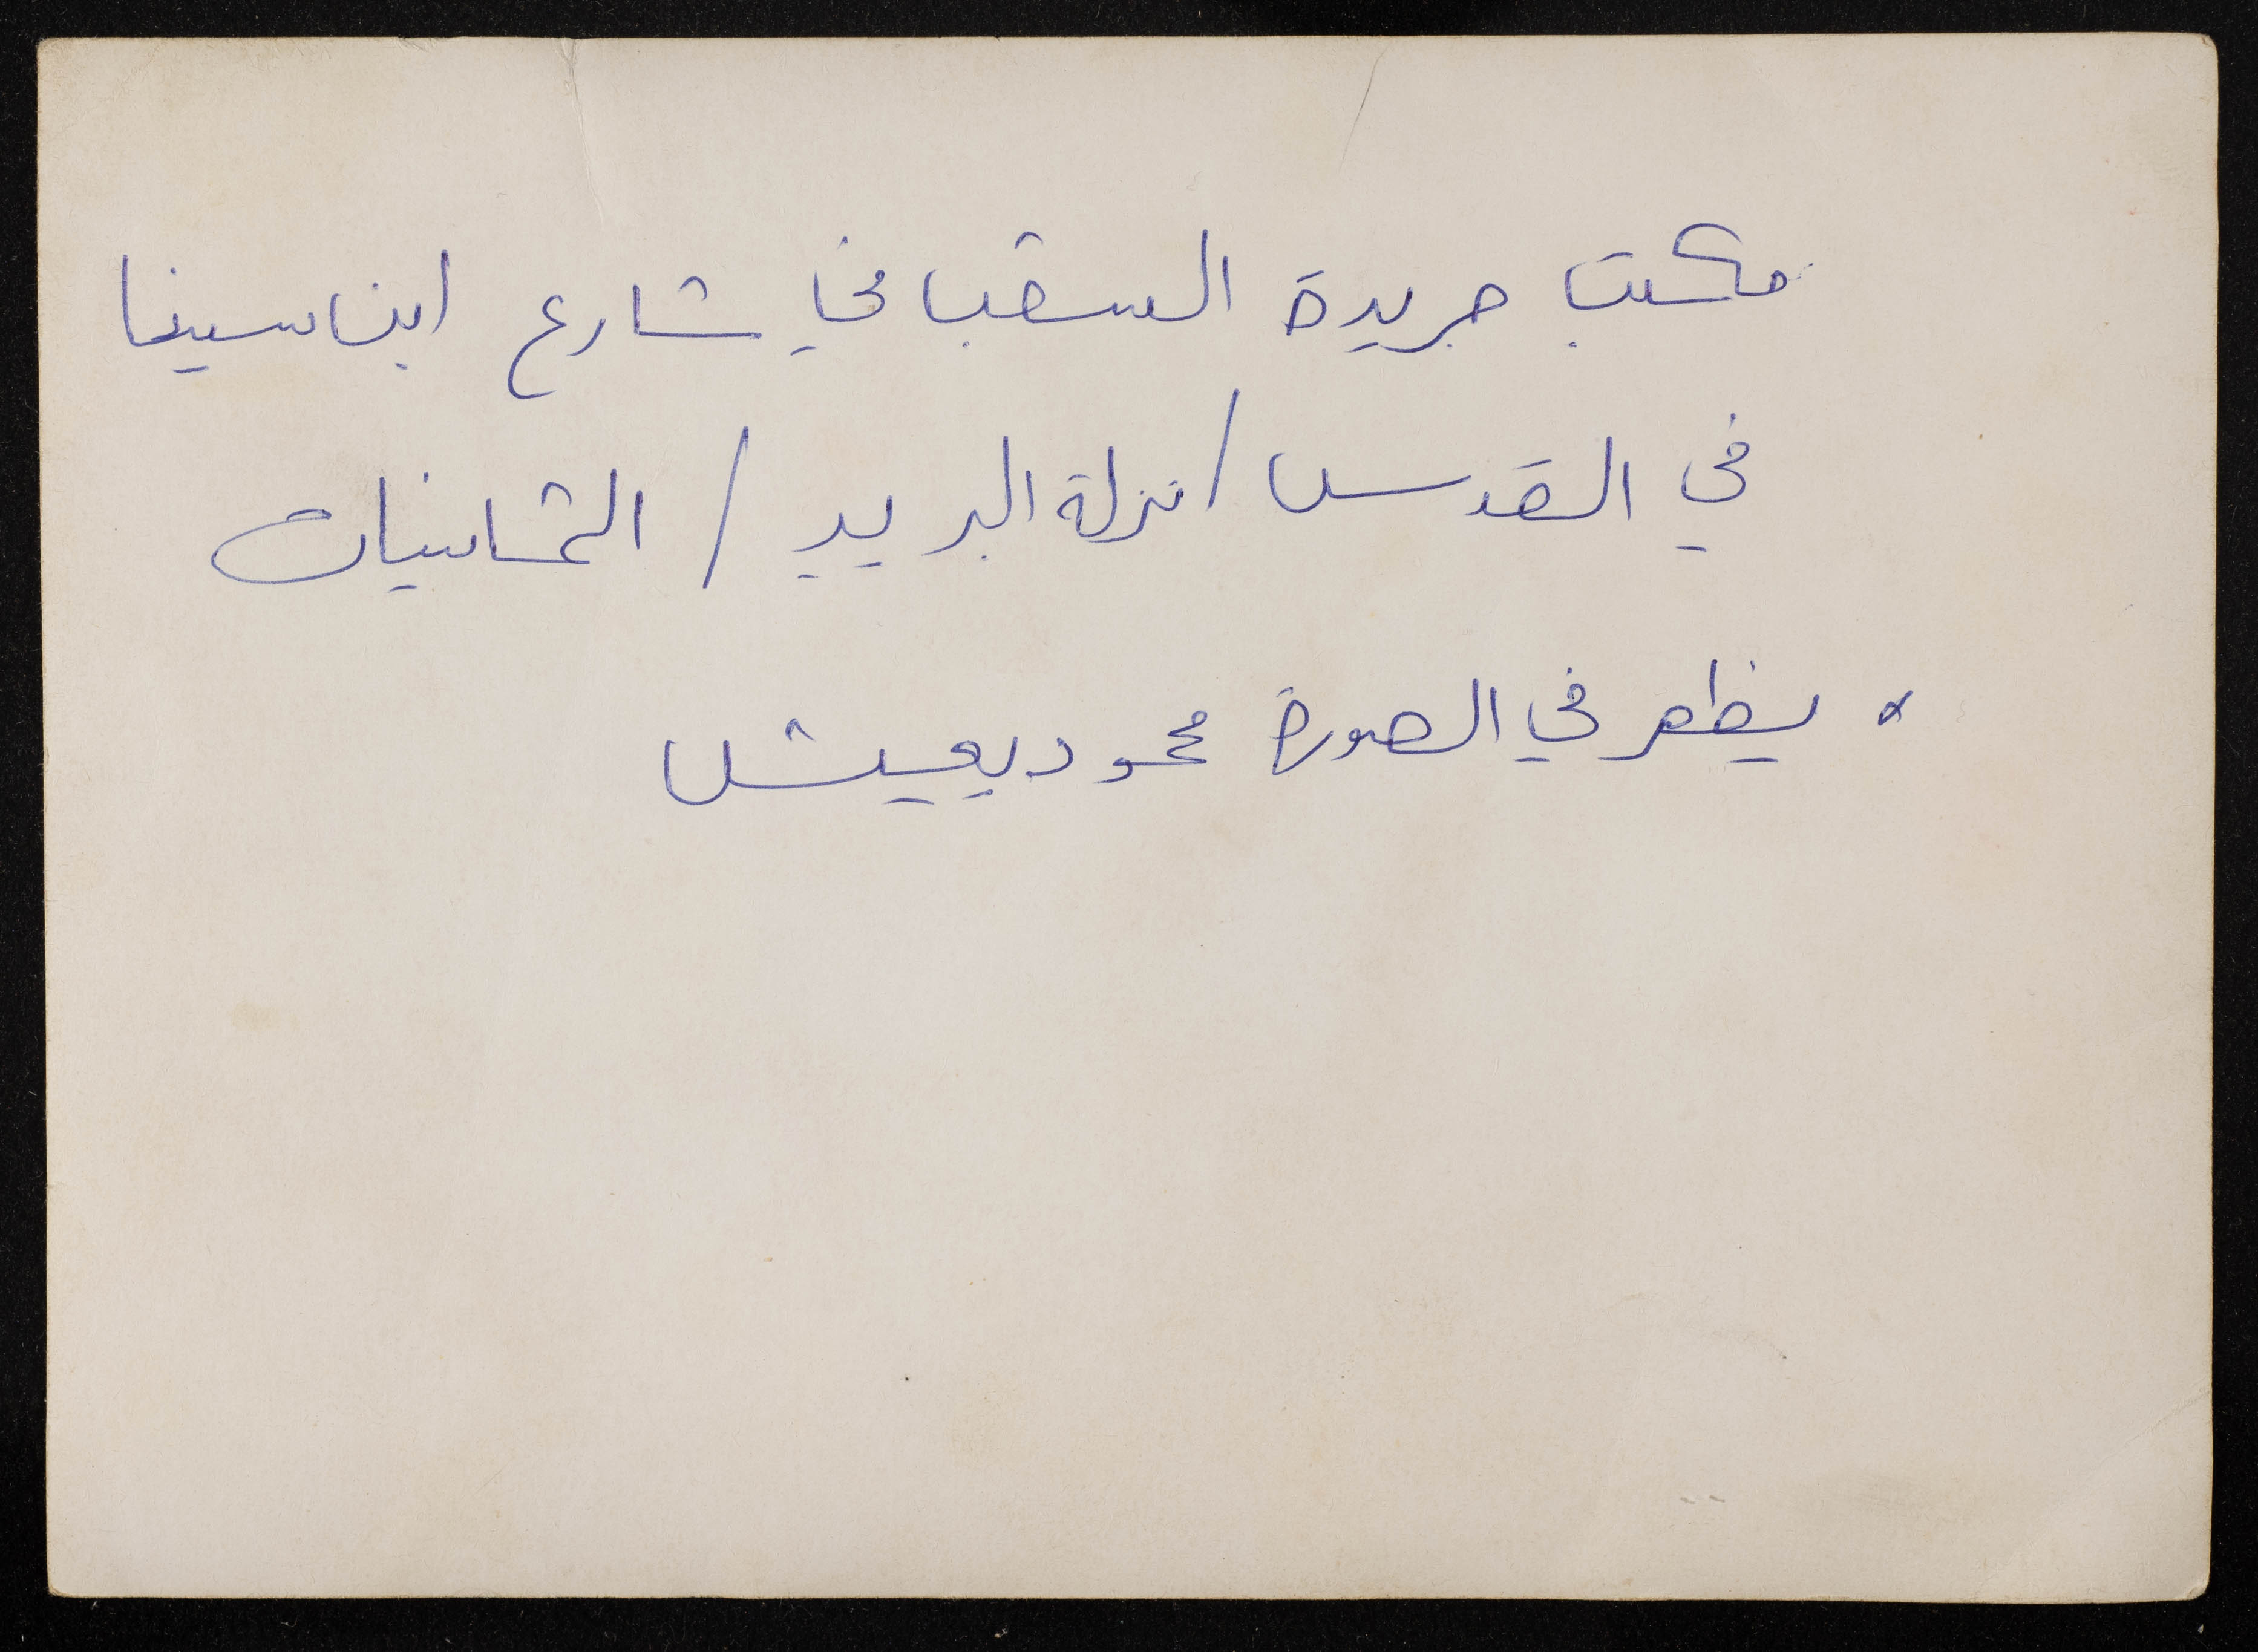 مكتب جريدة الشعب في شارع ابن سينا
في القدس / نزلة البريد / الثمانينات
* يظهر في الصورة محمود يعيش